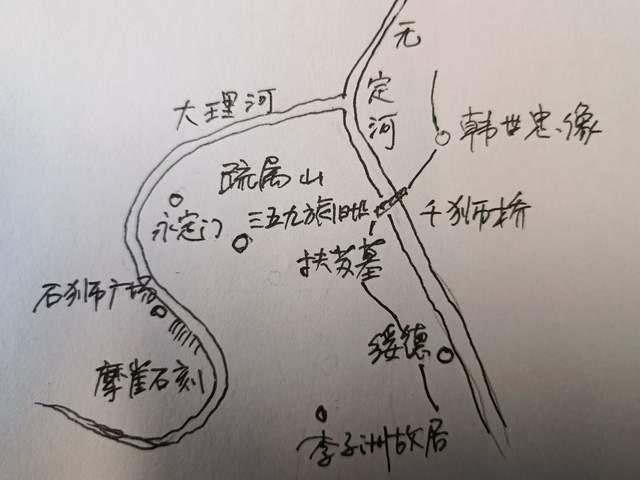 无定河
大理河
韩世忠像
疏属山
千狮桥
三五九旅旧址
永定门
扶苏墓
石狮广场
绥德
摩崖石刻
李子洲故居